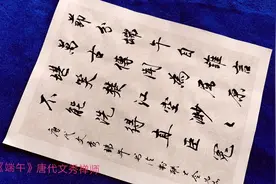 節分端午自誰言
萬古傳聞為屈原
堪笑楚江空渺〻
不能洗得直臣冤
唐代文秀端午
《端午》唐代文秀禅师